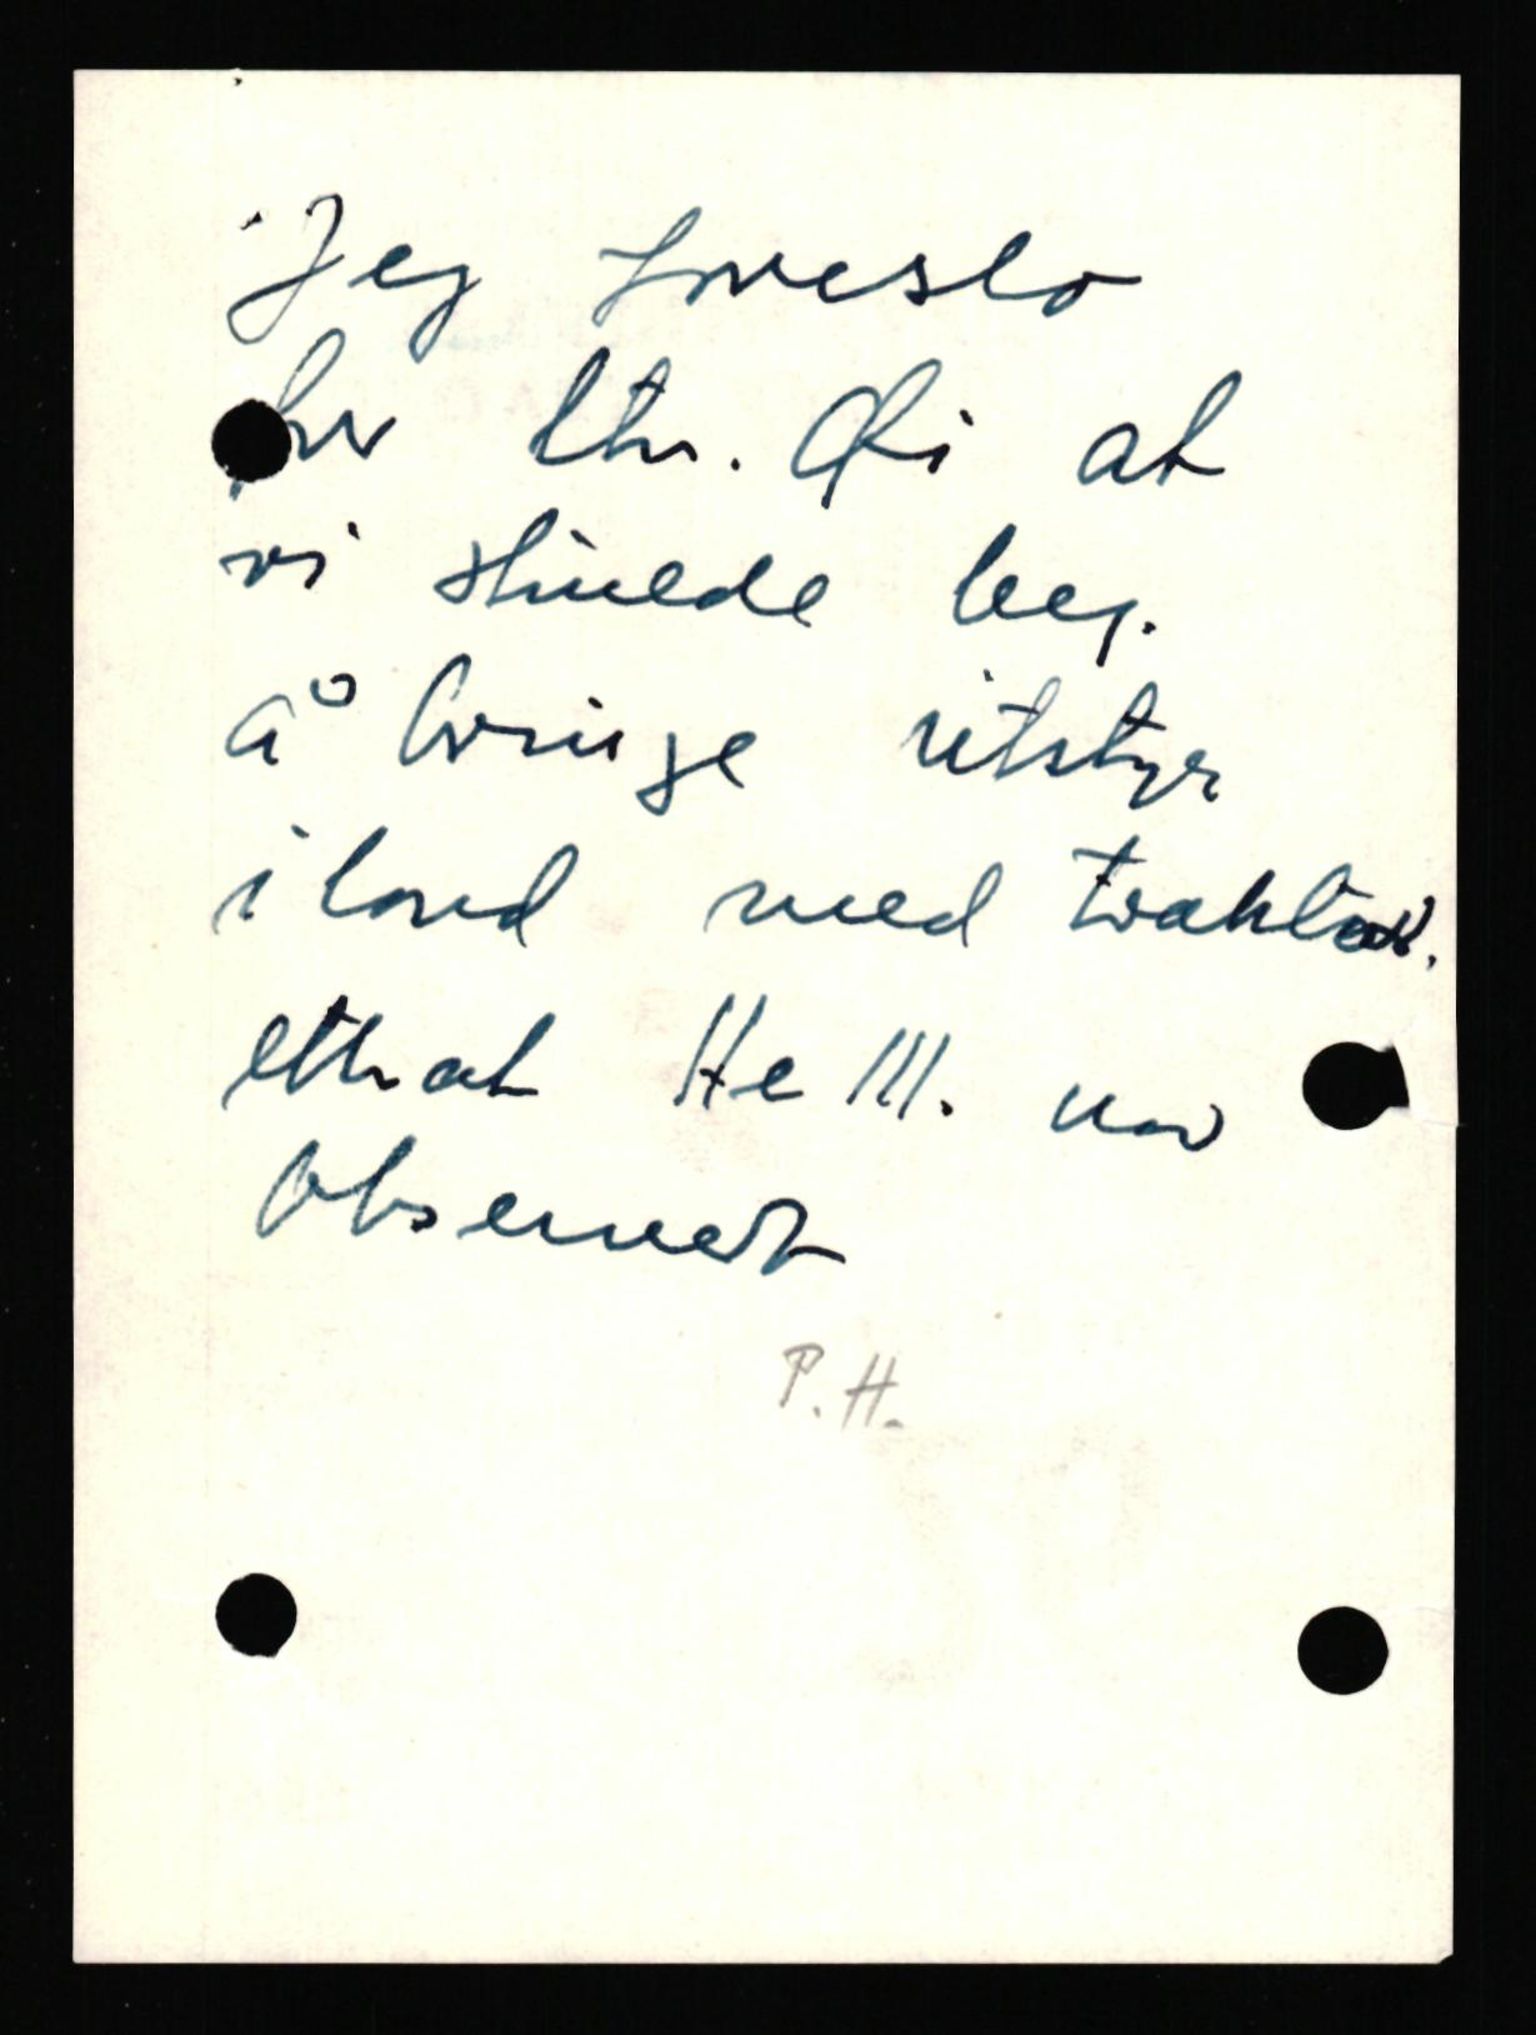 Jeg foreslo
for ltn. Qvi at
vi skulde beg.
å bringe utstyr
iland med traktor.
etterat He III. var
observert
P.H.